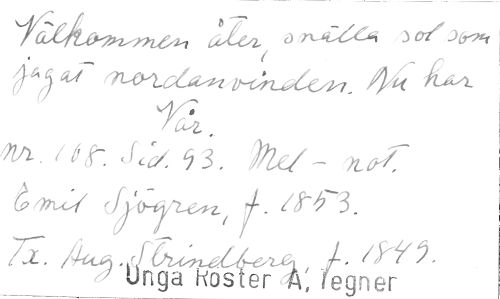 Välkommen åter, snälla sol som
jagat nordanvinden. Nu har
Vår.
nr. 168. Sid. 93. Mel - not.
Emil Sjögren, f. 1853.
Tx. Aug. Strindberg, f. 1849.
Unga Röster A, Tegner